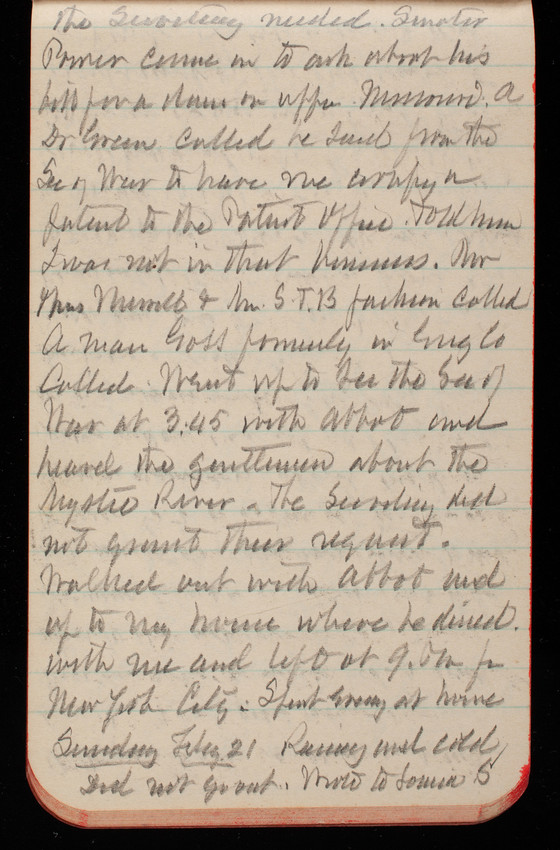 the Secretary needed. Senator
Power came in to ask about his
bill for a dam on upper Missouri. A
Dr Green called he said from the
Sec of War to have me certify a
patent to the Patent Office. Told him
I was not in that business. Mr
Thos Merrill & Mr. S.T.B Jackson called
A man Goss formerly in Eng Co
Called. Went up to See the Sec of
War at 3:45 with Abbot and
heard the gentlemen about the
Mystic River. The Secretary did
not grant their request.
Walked out with Abbot and
up to my house where he dined.
with me and left at 9. Pm for
New York City. Spent evening at home
Sunday Feby 21 Rainy and cold
Did not go out. Wrote to Louisa B